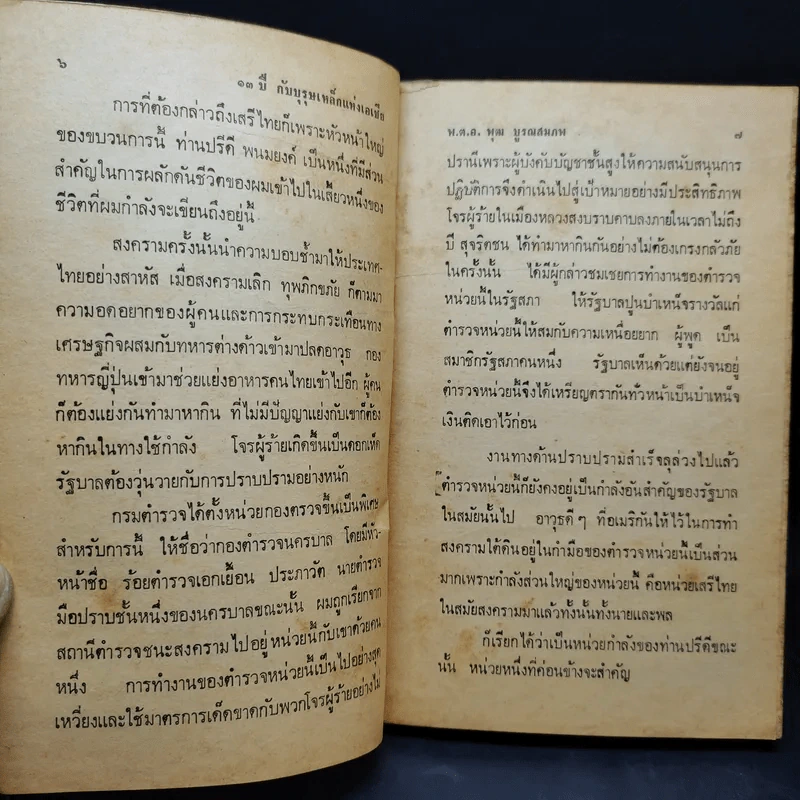 ๖
๑๓ ปี กับบุรุษเหล็กแห่งเอเซีย
การที่ต้องกล่าวถึงเสรีไทยก็เพราะหัวหน้าใหญ่
ของขบวนการนี้ ท่านปรีดี พนมยงค์ เป็นหนึ่งที่มีส่วน
สำคัญในการผลักดันชีวิตของผมเข้าไปในเสี้ยวหนึ่งของ
ชีวิตที่ผมกำลังจะเขียนถึงอยู่นี้
สงครามครั้งนั้นนำความบอบช้ำมาให้ประเทศ-
ไทยอย่างสาหัส เมื่อสงครามเลิก ทุพภิกขภัย ก็ตามมา
ความอดอยากของผู้คนและการกระทบกระเทือนทาง
เศรษฐกิจผสมกับทหารต่างด้าวเข้ามาปลดอาวุธ กอง
ทหารญี่ปุ่นเข้ามาช่วยแย่งอาหารคนไทยเข้าไปอีก ผู้คน
ก็ต้องแย่งกันทำมาหากิน ที่ไม่มีปัญญาแย่งกับเขาก็ต้อง
หากินในทางใช้กำลัง โจรผู้ร้ายเกิดขึ้นเป็นดอกเห็ด
รัฐบาลต้องวุ่นวายกับการปราบปรามอย่างหนัก
กรมตำรวจได้ตั้งหน่วยกองตรวจขึ้นเป็นพิเศษ
สำหรับการนี้ ให้ชื่อว่ากองตำรวจนครบาล โดยมีหัว-
หน้าชื่อ ร้อยตำรวจเอกเยื้อน ประภาวัต นายตำรวจ
มือปราบชั้นหนึ่งของนครบาลขณะนั้น ผมถูกเรียกจาก
สถานีตำรวจชนะสงครามไปอยู่หน่วยนี้กับเขาด้วยคน
หนึ่ง การทำงานของตำรวจหน่วยนี้เป็นไปอย่างสุด
เหวี่ยงและใช้มาตรการเด็ดขาดกับพวกโจรผู้ร้ายอย่างไม่
พ.ต.อ. พุฒ บูรณสมภพ
๗
ปรานีเพราะผู้บังคับบัญชาชั้นสูงให้ความสนับสนุนการ
ปฏิบัติการจึงดำเนินไปสู่เป้าหมายอย่างมีประสิทธิภาพ
โจรผู้ร้ายในเมืองหลวงสงบราบคาบลงภายในเวลาไม่ถึง
ปี สุจริตชน ได้ทำมาหากินกันอย่างไม่ต้องเกรงกลัวภัย
ในครั้งนั้น ได้มีผู้กล่าวชมเชยการทำงานของตำรวจ
หน่วยนี้ในรัฐสภา ให้รัฐบาลปูนบำเหน็จรางวัลแก่
ตำรวจหน่วยนี้ให้สมกับความเหนื่อยยาก ผู้พูด เป็น
สมาชิกรัฐสภาคนหนึ่ง รัฐบาลเห็นด้วยแต่ยังจนอยู่
ตำรวจหน่วยนี้จึงได้เหรียญตรากันทั่วหน้าเป็นบำเหน็จ
เงินติดเอาไว้ก่อน
งานทางด้านปราบปรามสำเร็จลุล่วงไปแล้ว
ตำรวจหน่วยนี้ก็ยังคงอยู่เป็นกำลังอันสำคัญของรัฐบาล
ในสมัยนั้นไป อาวุธดี ๆ ที่อเมริกันให้ไว้ในการทำ
สงครามใต้ดินอยู่ในกำมือของตำรวจหน่วยนี้เป็นส่วน
มากเพราะกำลังส่วนใหญ่ของหน่วยนี้ คือหน่วยเสรีไทย
ในสมัยสงครามมาแล้วทั้งนั้นทั้งนายและพล
ก็เรียกได้ว่าเป็นหน่วยกำลังของท่านปรีดีขณะ
นั้น หน่วยหนึ่งที่ค่อนข้างจะสำคัญ